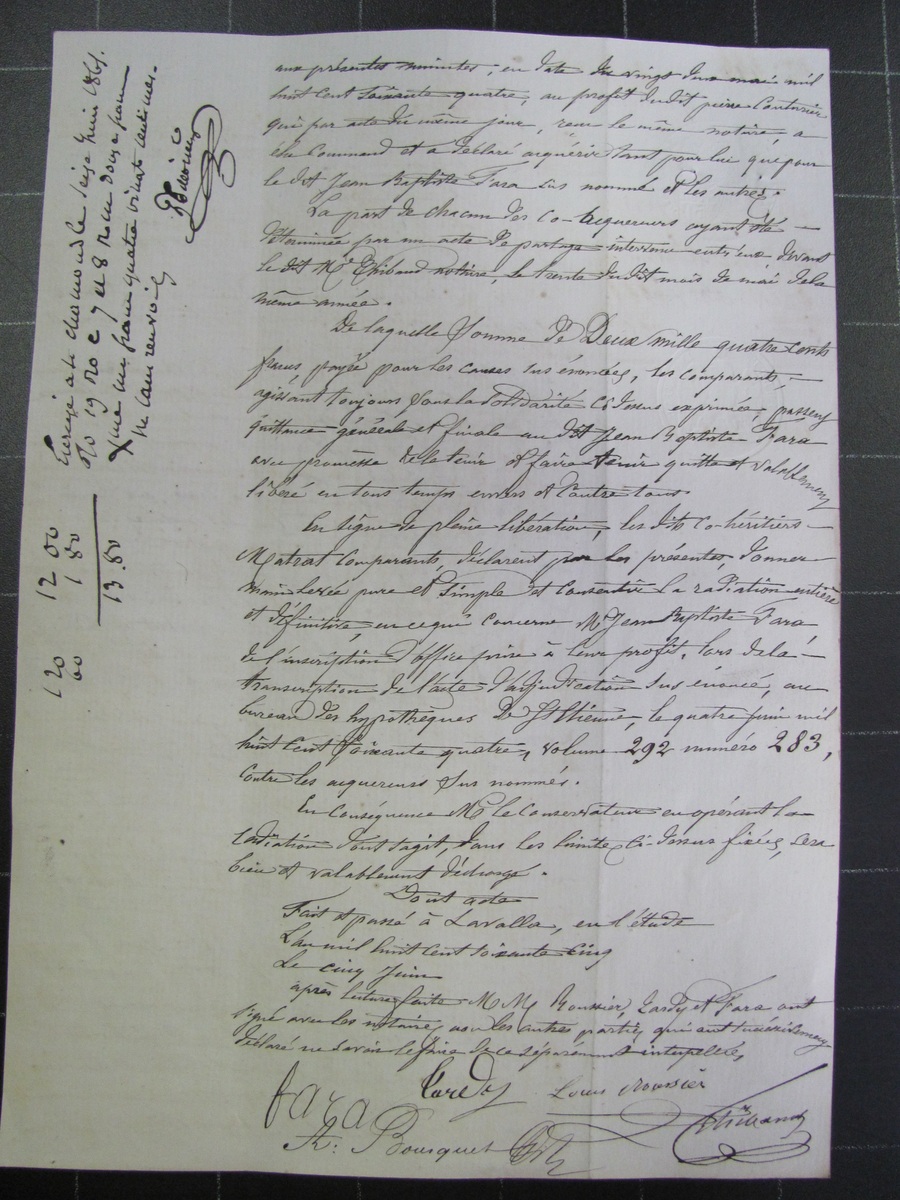 aux présentes minutes, en date du vingt deux mai mil
huit cent soixante quatre, au profit dudit pierre Couturier
qui par acte du même jour, reçu le même notaire, a
élu Command et a déclaré acquérir tant pour lui que pour
le dit Jean Baptiste Fara sus nommé et les autres.
La part de chacun des co-acquereurs ayant été
déterminée par un acte de partage intervenu entr'eux devant
le dit Me Thibaud notaire, le trente dudit mois de mai de la
même année.
De laquelle somme de Deux mille quatre cents
francs, payée pour les causes sus énoncées, les comparants,
agissant toujours sous la solidarité ci dessus exprimée, passent
quittance générale et finale au dit Jean Baptiste Fara
avec promesse de le tenir et faire tenir quitte et valablement
libéré en tous temps envers et contre tous.
En signe de pleine libération, les dits co-héritiers
Matrat comparants, déclarent par les présentes, donner
main levée pure et simple et consentir la radiation entière
et définitive, en ce qui concerne Mr Jean Baptiste Fara
de l'inscription d'office prise à leur profit, lors de la
transcription de l'acte d'adjudication sus énoncé, au
bureau des hypothèques De St Etienne, le quatre juin mil
huit cent soixante quatre, volume 292 numéro 283,
contre les acquereurs sus nommés.
En conséquence Mr le Conservateur en opérant la
radiation dont s'agit, dans les limites ci-dessus fixées, sera
bien et valablement déchargé.
Dont acte
Fait et passé à Lavalla, en l'étude
L'an mil huit cent soixante cinq
Le cinq Juin
après lecture faite MM Roussier, Tardy et Fara ont
signé avec les notaires, non les autres parties qui ont
déclaré ne savoir le faire de ce séparément interpellés,
Tardy Louis Roussier
fara Thibaud
A. Bousquet
Enregistré à St chamond le seize Juin 1865.
fo 19 Ro c 7 et 8 reçu douze francs
Dixme un franc quatre vingts centimes.
ne cam renvoi
12 00
1 80
13.80
120
00